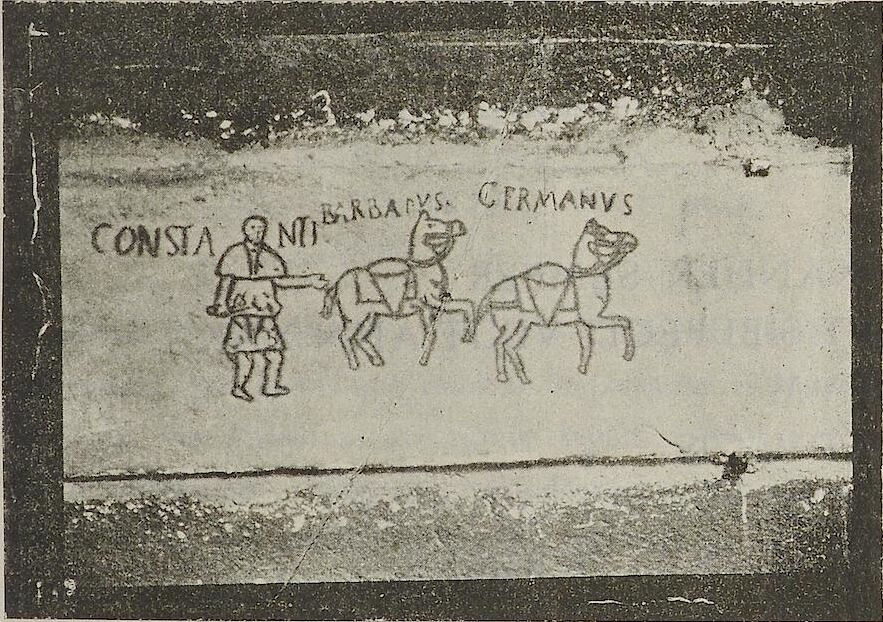 CONSTANTI BARBARVS. GERMANVS